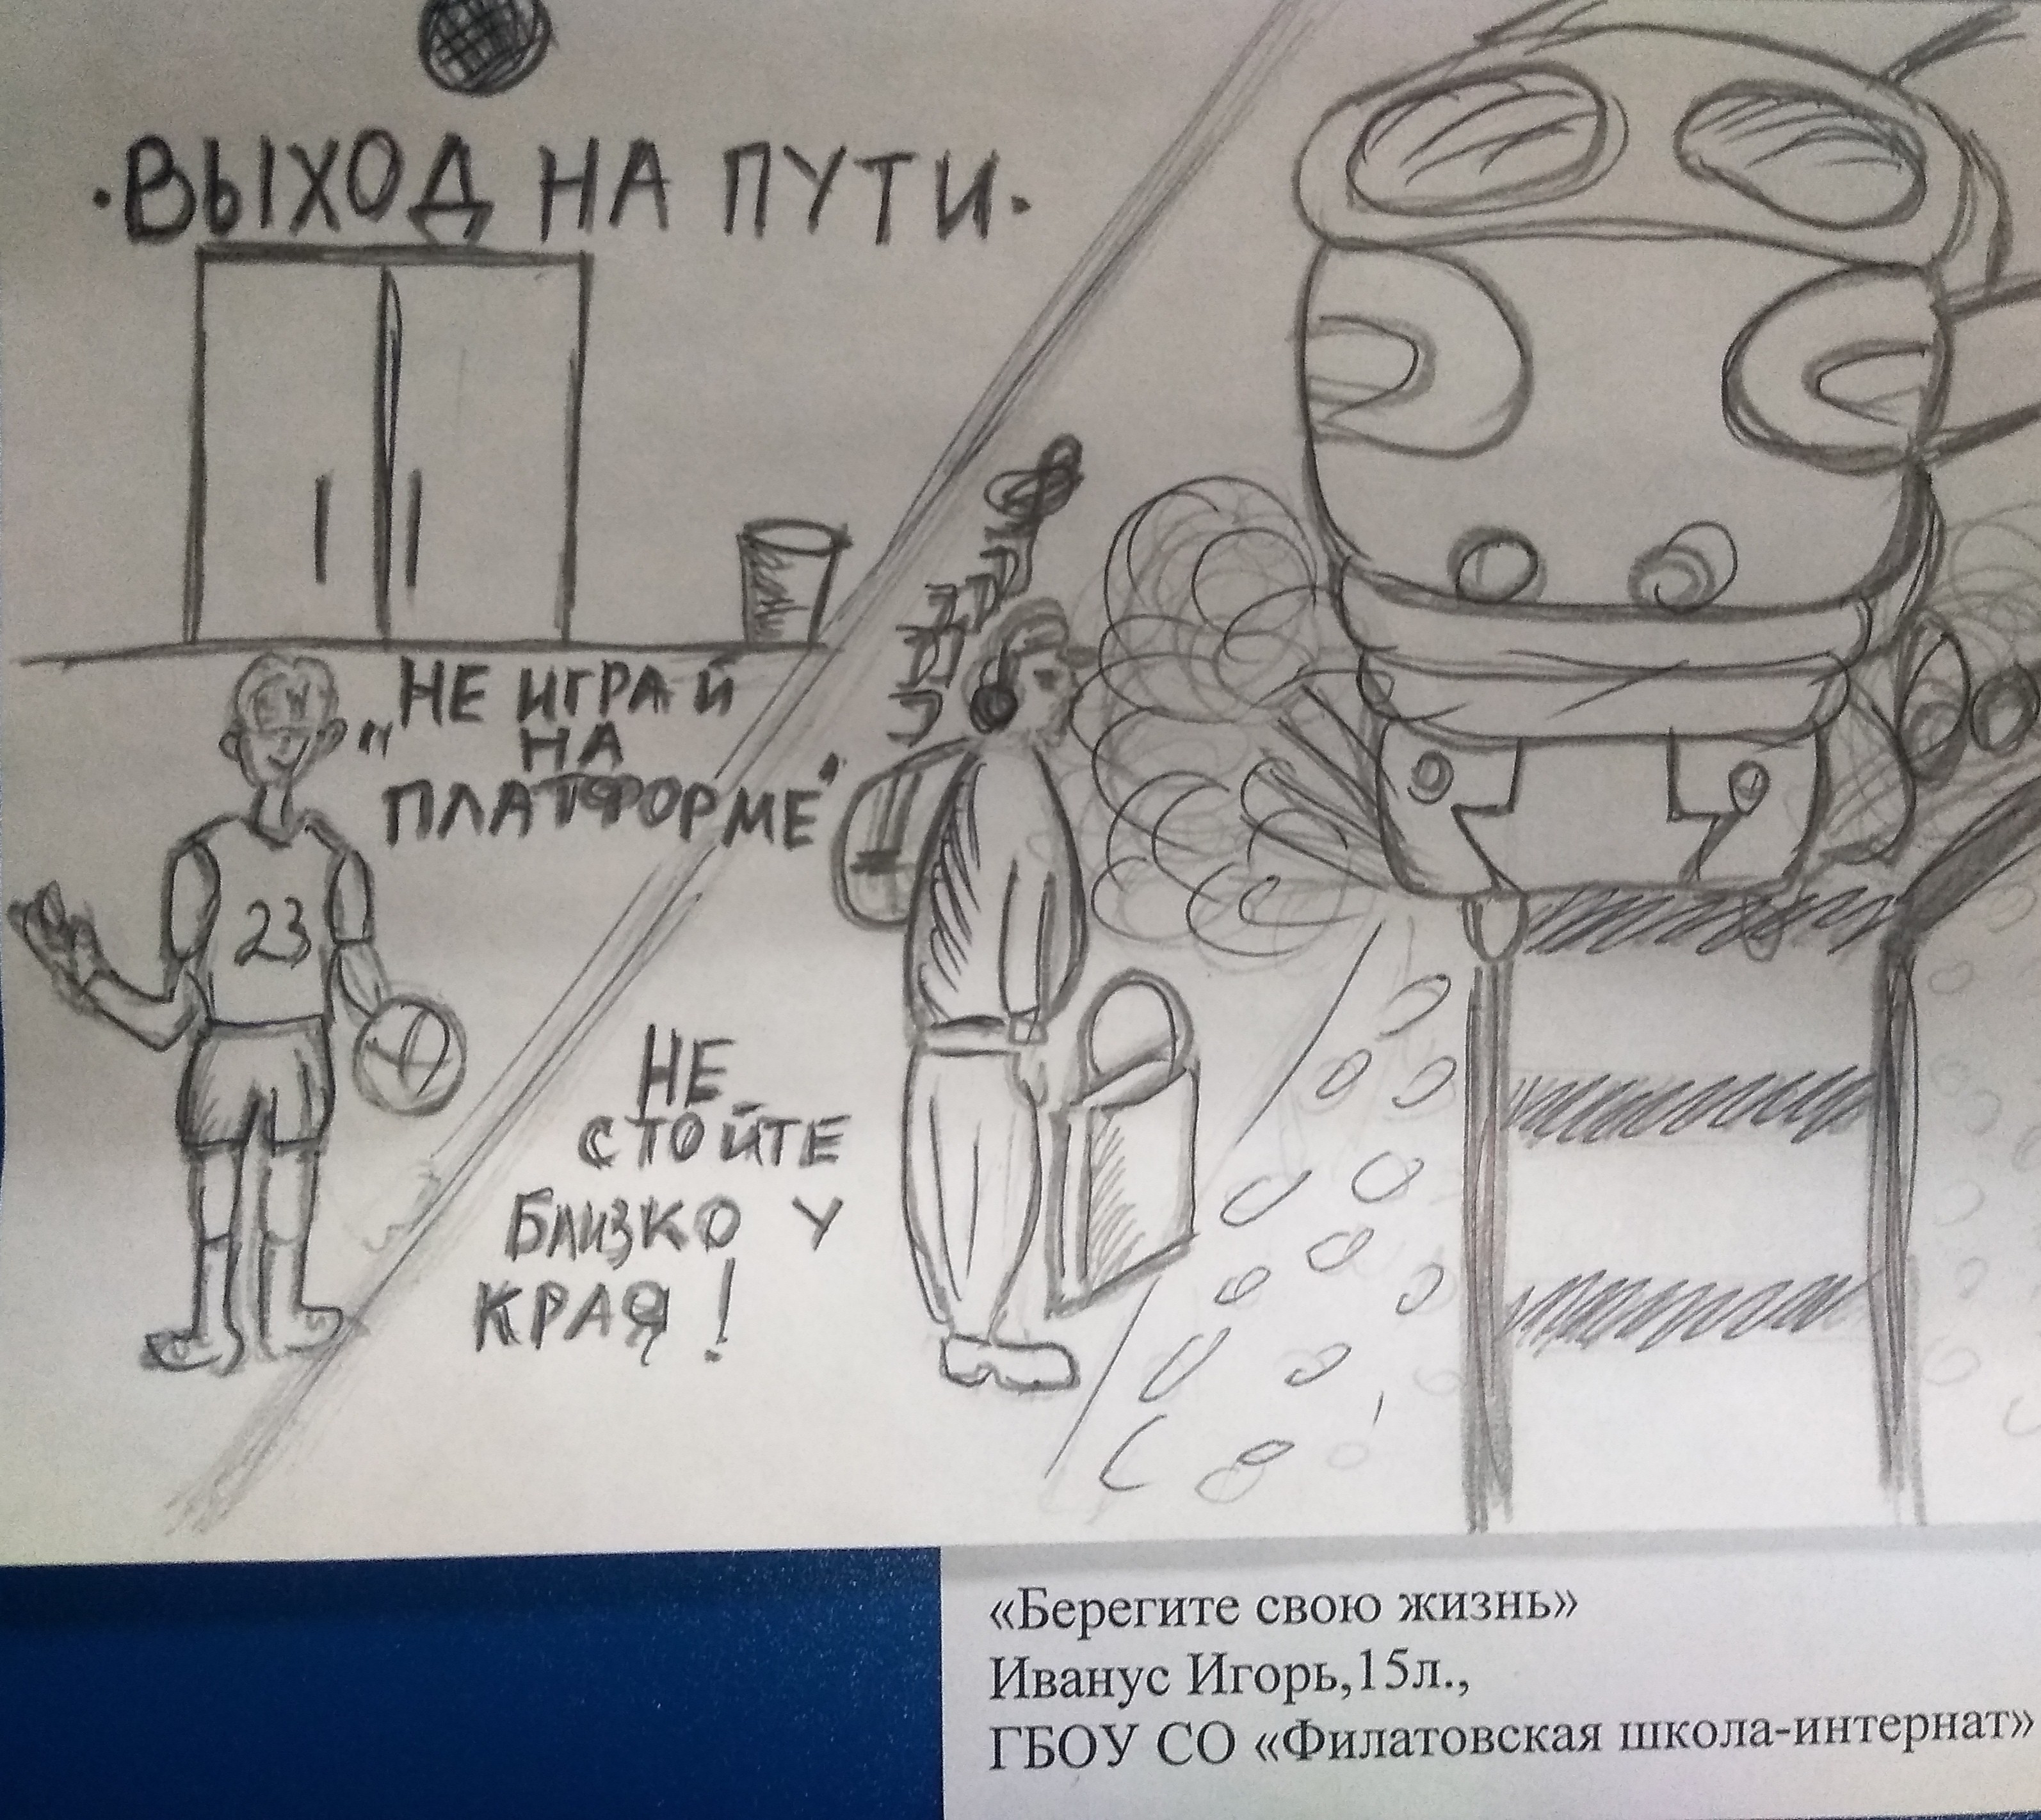 ·ВЫХОД НА ПУТИ·
„НЕ ИГРАЙ
НА
ПЛАТФОРМЕ"
23
НЕ
СТОЙТЕ
БЛИЗКО У
КРАЯ!
«Берегите свою жизнь»
Иванус Игорь,15л.,
ГБОУ СО «Филатовская школа-интернат»